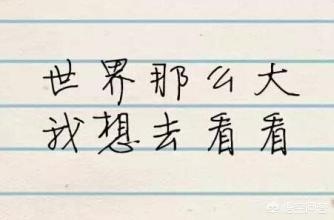 世界那么大
我想去看看
悟空问答